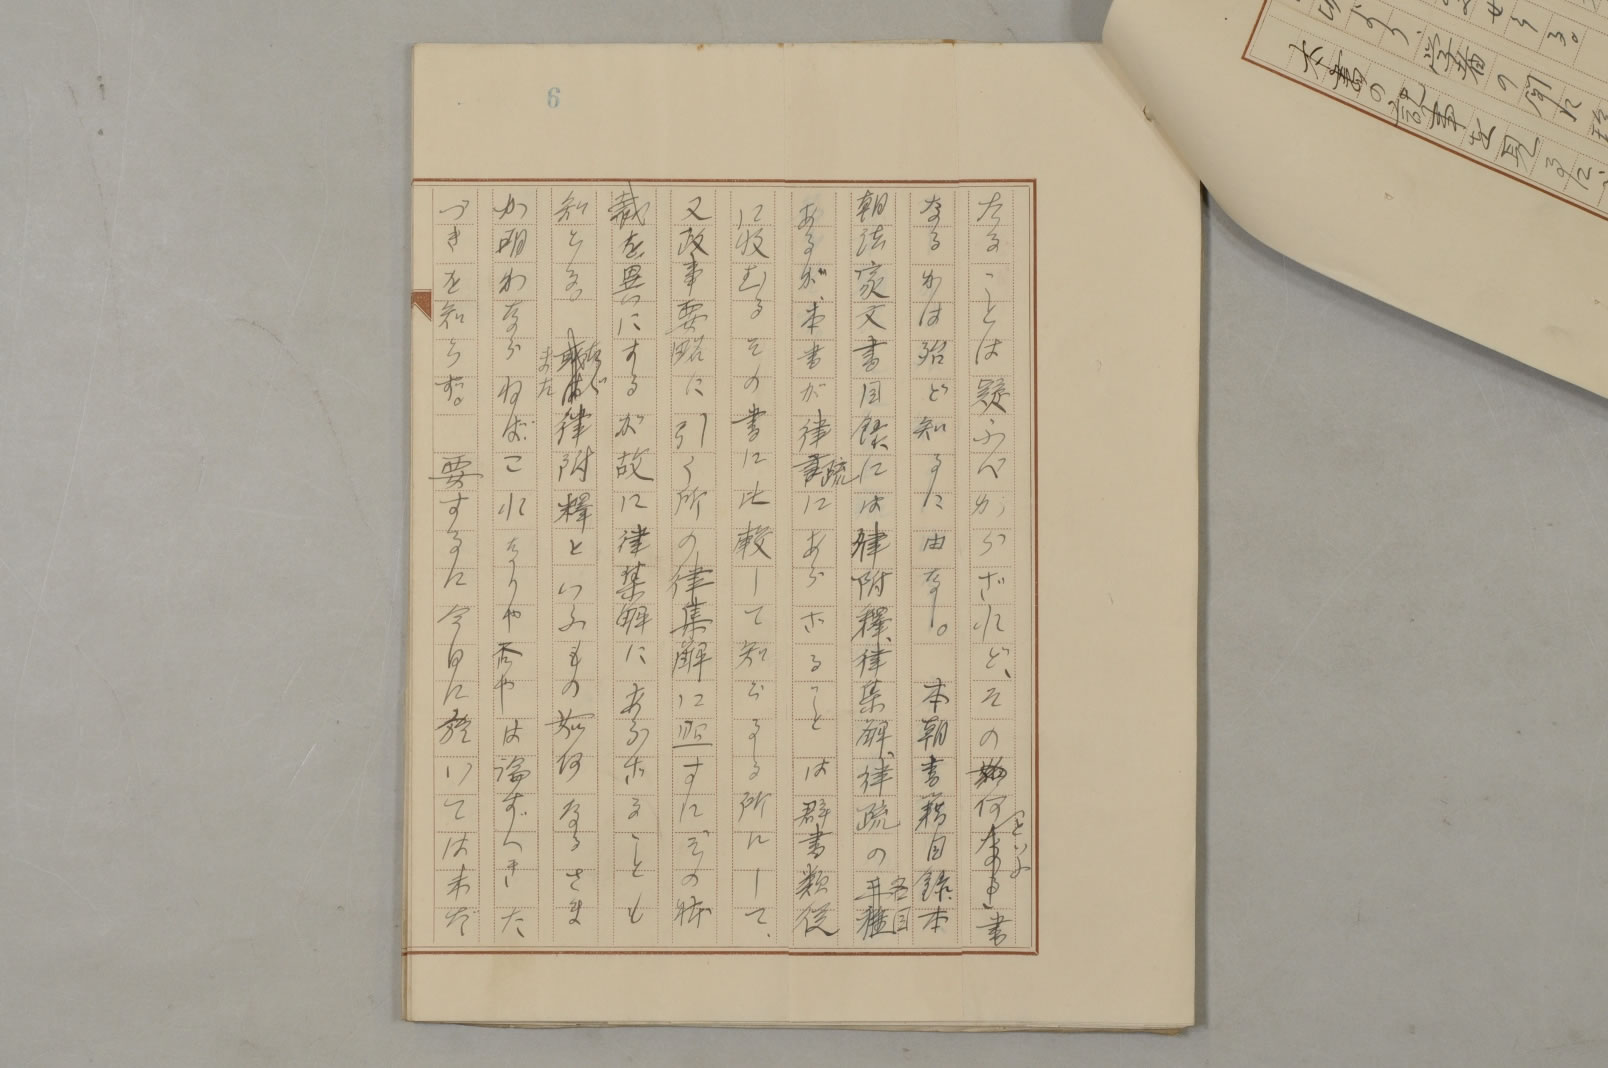 6
たることは疑ふべからざれど、その何といふ書
なるかは殆ど知るに由なし。本朝書籍目録、本
朝法家文書目録には律附釋、律集解、律疏の各目
あるが、本書が律疏にあらざることは群書類従
に收むるその書に比較して知らるる所にして、
又政事要略に引く所の律集解に照すにその体
裁を異にするが故に律集解にあらざることも
知らる。たゞまた律附釋といふもの如何なるさま
か明かならねばこれなりや否やは論ずべきた
づきを知らず。要するに今日に於いては未だ
せらる。
学者の間に
本書の記事を見るに